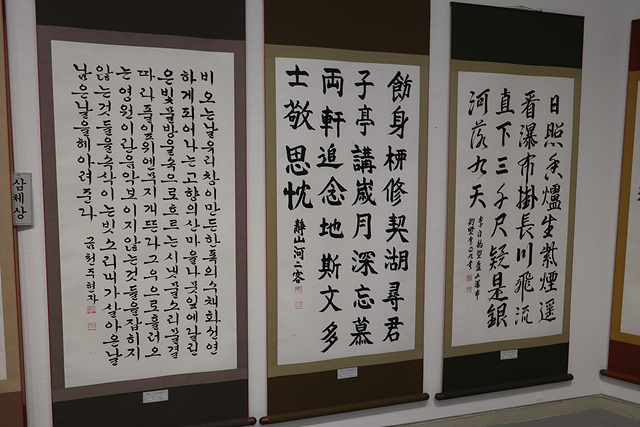 삼체상
비오는날유리창이만든한폭의수채화선연
하게피어나는고향의산마을나뭇잎에달린
은빛물방울속으로흐르는시냇물소리물결
따라풀잎위엔무지개뜬다그우으로흘러오
는영원이란음악보이지않는것들을잡히지
않는것들을속삭이는빗소리내가살아온날
남은날을헤아려준다 주현자
飭身修契湖尋君
子亭講歲月深忘慕
両軒追念地斯文多
士敬思忱 靜山河二容
日照香爐生紫煙遥
看瀑布掛長川飛流
直下三千尺疑是銀
河落九天